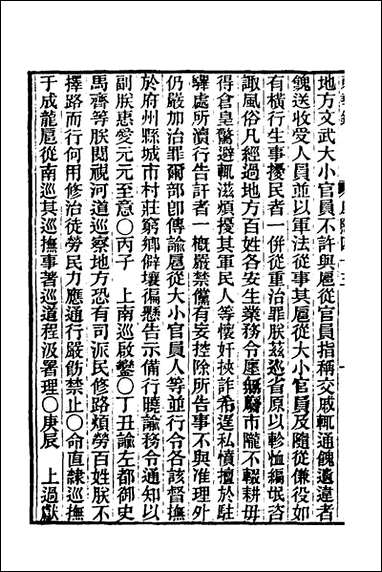 地方文武大小官員不許與扈從官員指稱交戚輒通餽遺違者
餽送收受人員並以軍法從事其扈從大小官員及隨從傔役如
有橫行生事擾民者一併從重治罪朕茲巡省原以軫恤編氓咨
諏風俗凡經過地方百姓各安生業務令廛無鬨市隴不輟耕毋
得倉皇驚避輒滋煩擾其軍民人等懷奸挾詐希逞私憤擅於駐
驆處所瀆行告訐者一概嚴禁儻有妄控除所告事不與准理外
仍嚴加治罪爾部卽傳諭扈從大小官員人等並行令各該督撫
於府州縣城市村莊窮鄉僻壤徧懸告示備行曉諭務令通知以
副朕惠愛元元至意〇丙子　上南巡啟鑾〇丁丑諭左都御史
馬齊等朕閱視河道巡察地方恐有司派民修路煩勞百姓朕不
擇路而行何用修治徒勞民力應通行嚴飭禁止〇命直隸巡撫
于成龍扈從南巡其巡撫事著巡道程汲署理〇庚辰　上過獻